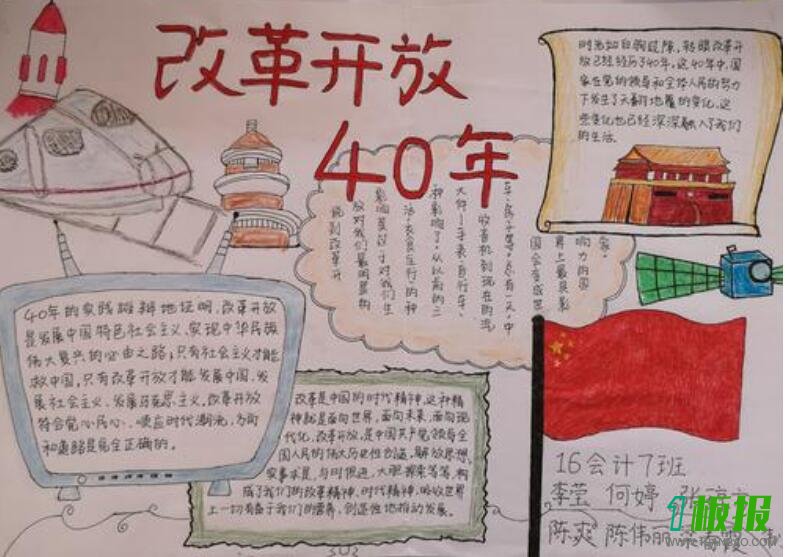 改革开放
40年
时光如白驹过隙，转眼改革开
放已经经历了40年，这40年中，国
家在党的领导和全体人民的努力
下发生了天翻地覆的变化，这
些变化也已经深深融入了我们
的生活。
说到改革开
放对我们最明显的
影响莫过于对我们生
活“衣食住行”的种
种影响了。从以前的三
大件——手表、自行车、
收音机到现在的汽
车、房子等。总有一天，中
国会变成世
界上最具影
响力的国
家。
40年的实践雄辩地证明，改革开放
是发展中国特色社会主义，实现中华民族
伟大复兴的必由之路；只有社会主义才能
救中国，只有改革开放才能发展中国、发
展社会主义、发展马克思主义。改革开放
符合党心民心、顺应时代潮流，方向
和道路是完全正确的。
改革是中国的时代精神，这种精
神就是面向世界，面向未来，面向现
代化，改革开放，是中国共产党领导全
国人民的伟大历史性创造，解放思想，
实事求是，与时俱进，大胆探索等等，构
成了我们的改革精神、时代精神，吸收世界
上一切有益于我们的营养，创造性地推动发展。
16会计7班
李莹 何婷 张
陈爽 陈伟丽
1板报